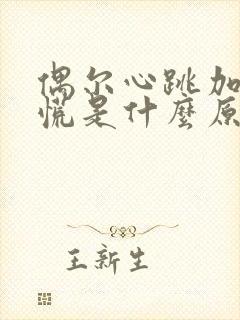 偶尔心跳加
慌是什麼原
王新生